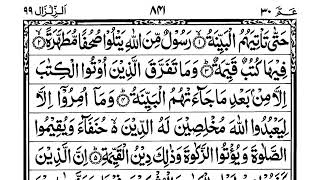 الزلزال ٩٩ ٨٤١ عم ٣٠
حَتّٰى تَاْتِيَهُمُ الْبَيِّنَةُ ۙ﴿۱﴾ رَسُوْلٌ مِّنَ اللّٰهِ يَتْلُوْا صُحُفًا مُّطَهَّرَةً ۙ﴿۲﴾
فِيْهَا كُتُبٌ قَيِّمَةٌ ؕ﴿۳﴾ وَمَا تَفَرَّقَ الَّذِيْنَ اُوْتُوا الْكِتٰبَ
اِلَّا مِنْۢ بَعْدِ مَا جَآءَتْهُمُ الْبَيِّنَةُ ؕ﴿۴﴾ وَمَاۤ اُمِرُوْۤا اِلَّا
لِيَعْبُدُوا اللّٰهَ مُخْلِصِيْنَ لَهُ الدِّيْنَ ۙ۬ حُنَفَآءَ وَيُقِيْمُوا
الصَّلٰوةَ وَيُؤْتُوا الزَّكٰوةَ وَذٰلِكَ دِيْنُ الْقَيِّمَةِ ؕ﴿۵﴾ اِنَّ الَّذِيْنَ